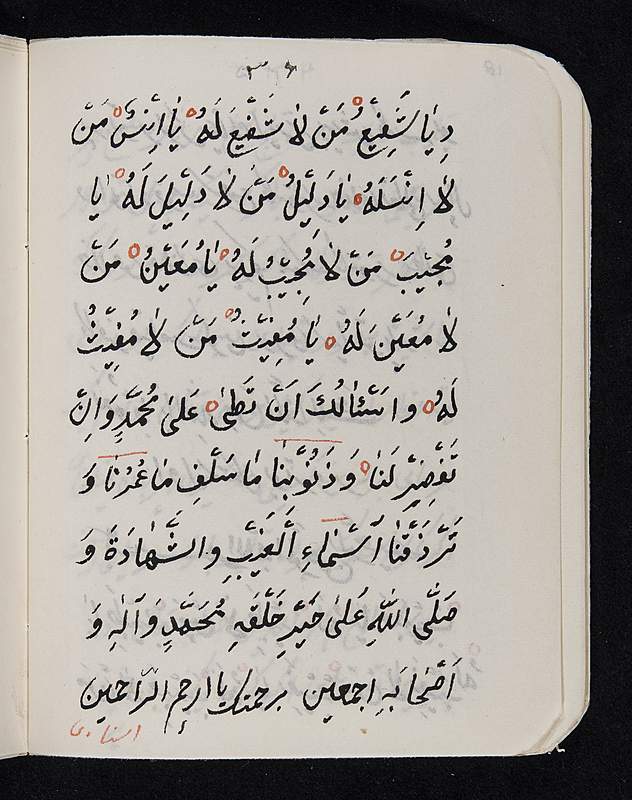 ۳۶
دِ يَا شَفِيْعُ مَنْ لَا شَفِيْعَ لَهُ يَا اَنِيْسُ مَنْ
لَا اَنِيْسَ لَهُ يَا دَلِيْلُ مَنْ لَا دَلِيْلَ لَهُ يَا
مُجِيْبَ مَنْ لَا مُجِيْبُ لَهُ يَا مُعِيْنُ مَنْ
لَا مُعِيْنَ لَهُ يَا مُغِيْثُ مَنْ لَا مُغِيْثُ
لَهُ وَاسْئَالُكَ اَنْ عَلَىٰ مُحَمَّدٍ وَاَنْ
لَنَا وَ ذَنُوْبِنَا مَا سَلَفِ مَا وَ
وَالشَّهَادَةَ وَ
صَلَّى اللهِ عَلَىٰ خَيْرِ خَلْقِهِ مُحَمَّدٍ وَآلِهِ وَ
اَصْحَابِهِ اجمعين برحمتك يا ارحم الرّاحمين